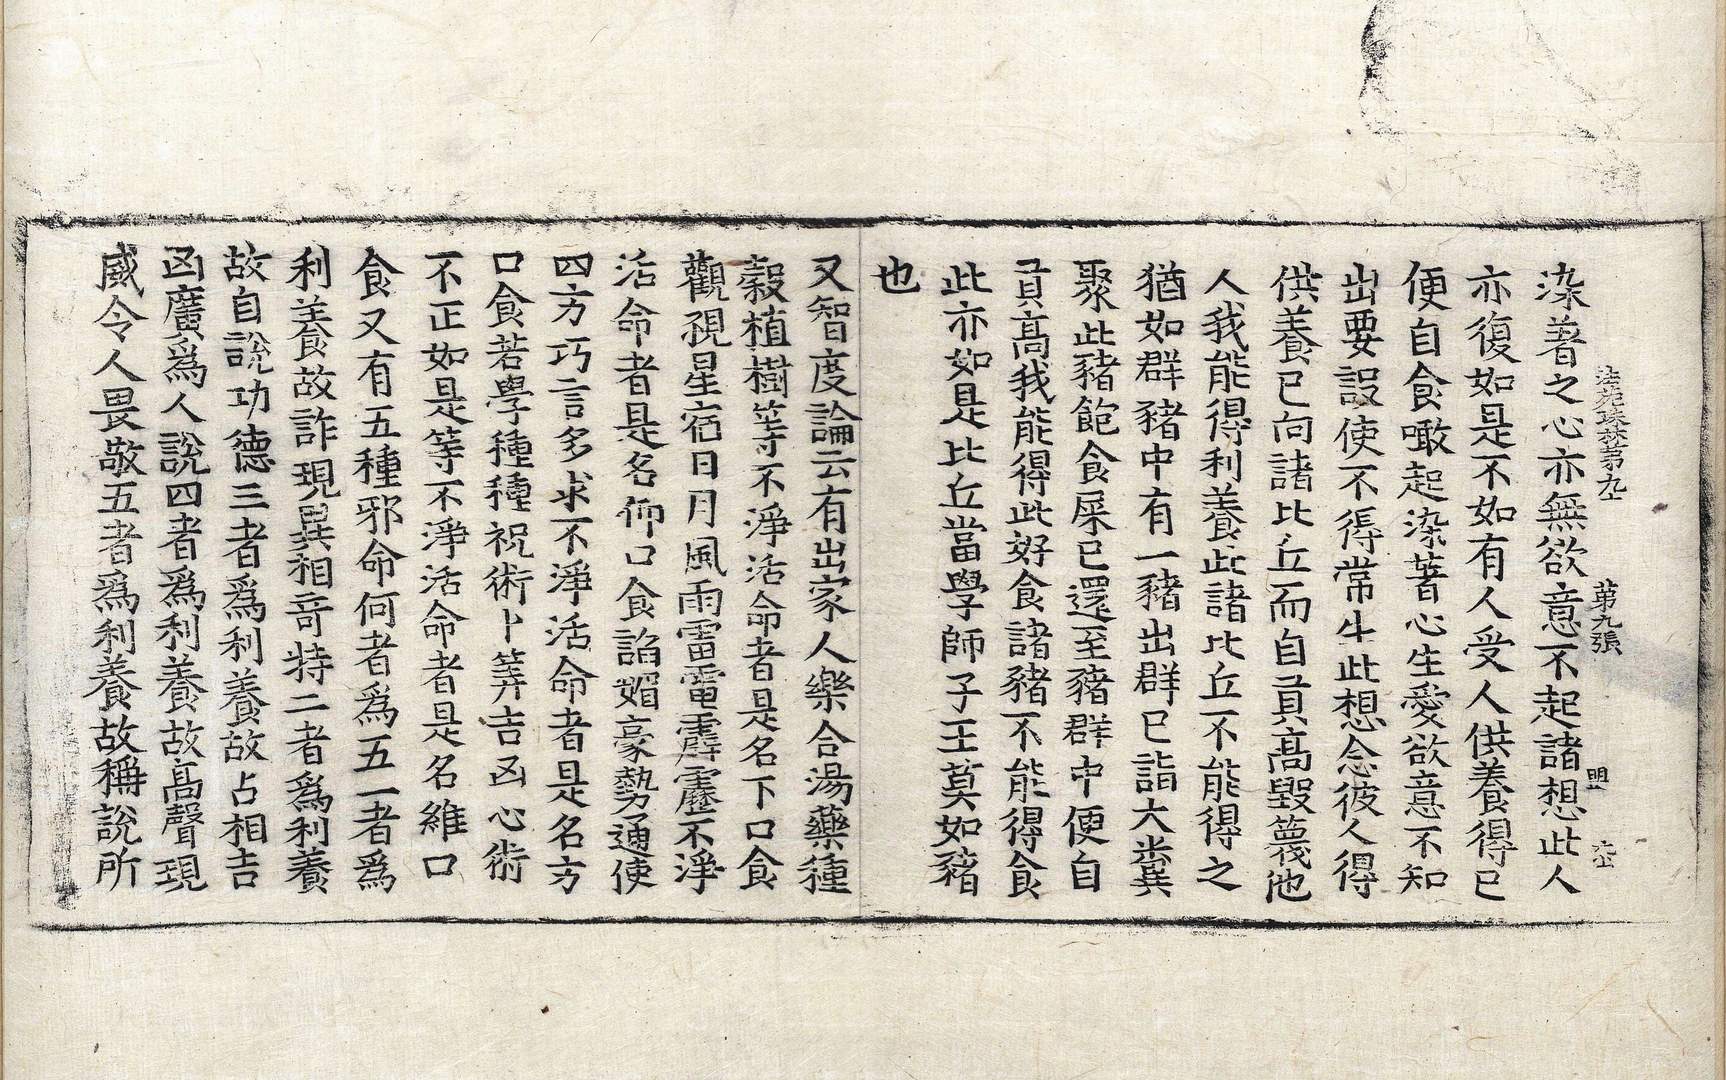 法苑珠林第九十　第九張　明　六十
染著之心亦無欲意不起諸想此人
亦復如是不如有人受人供養得已
便自食噉起染著心生愛欲意不知
出要設使不得常生此想念彼人得
供養已向諸比丘而自貢高毀蔑他
人我能得利養此諸比丘不能得之
猶如群豬中有一豬出群已詣大糞
聚此豬飽食屎已還至豬群中便自
貢高我能得此好食諸豬不能得食
此亦如是比丘當學師子王莫如豬
也
又智度論云有出家人樂合湯藥種
穀植樹等不淨活命者是名下口食
觀視星宿日月風雨雷電霹靂不淨
活命者是名仰口食諂媚豪勢通使
四方巧言多求不淨活命者是名方
口食若學種種祝術卜筭吉凶心術
不正如是等不淨活命者是名維口
食又有五種邪命何者為五一者為
利養故詐現異相奇特二者為利養
故自說功德三者為利養故占相吉
凶廣為人說四者為利養故高聲現
威令人畏敬五者為利養故稱說所